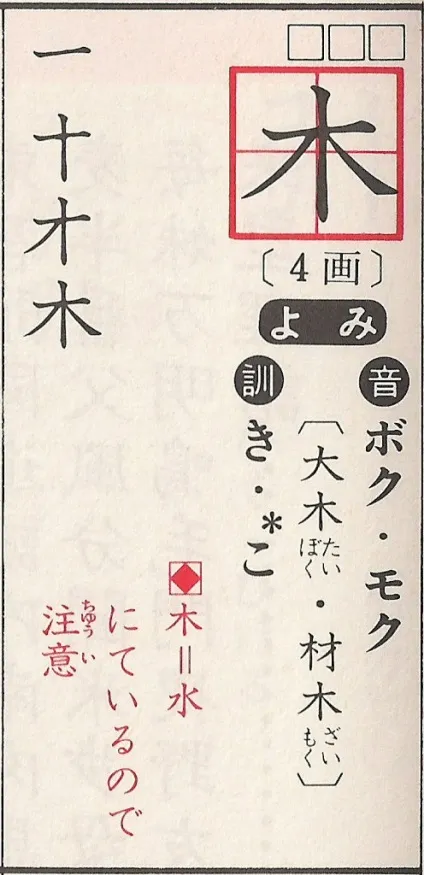 □□□
木
〔4画〕
よみ
音 ボク・モク
〔大木たいぼく・材木ざいもく〕
訓 き・*こ
◆木＝水
にているので
注意ちゅうい
一十才木